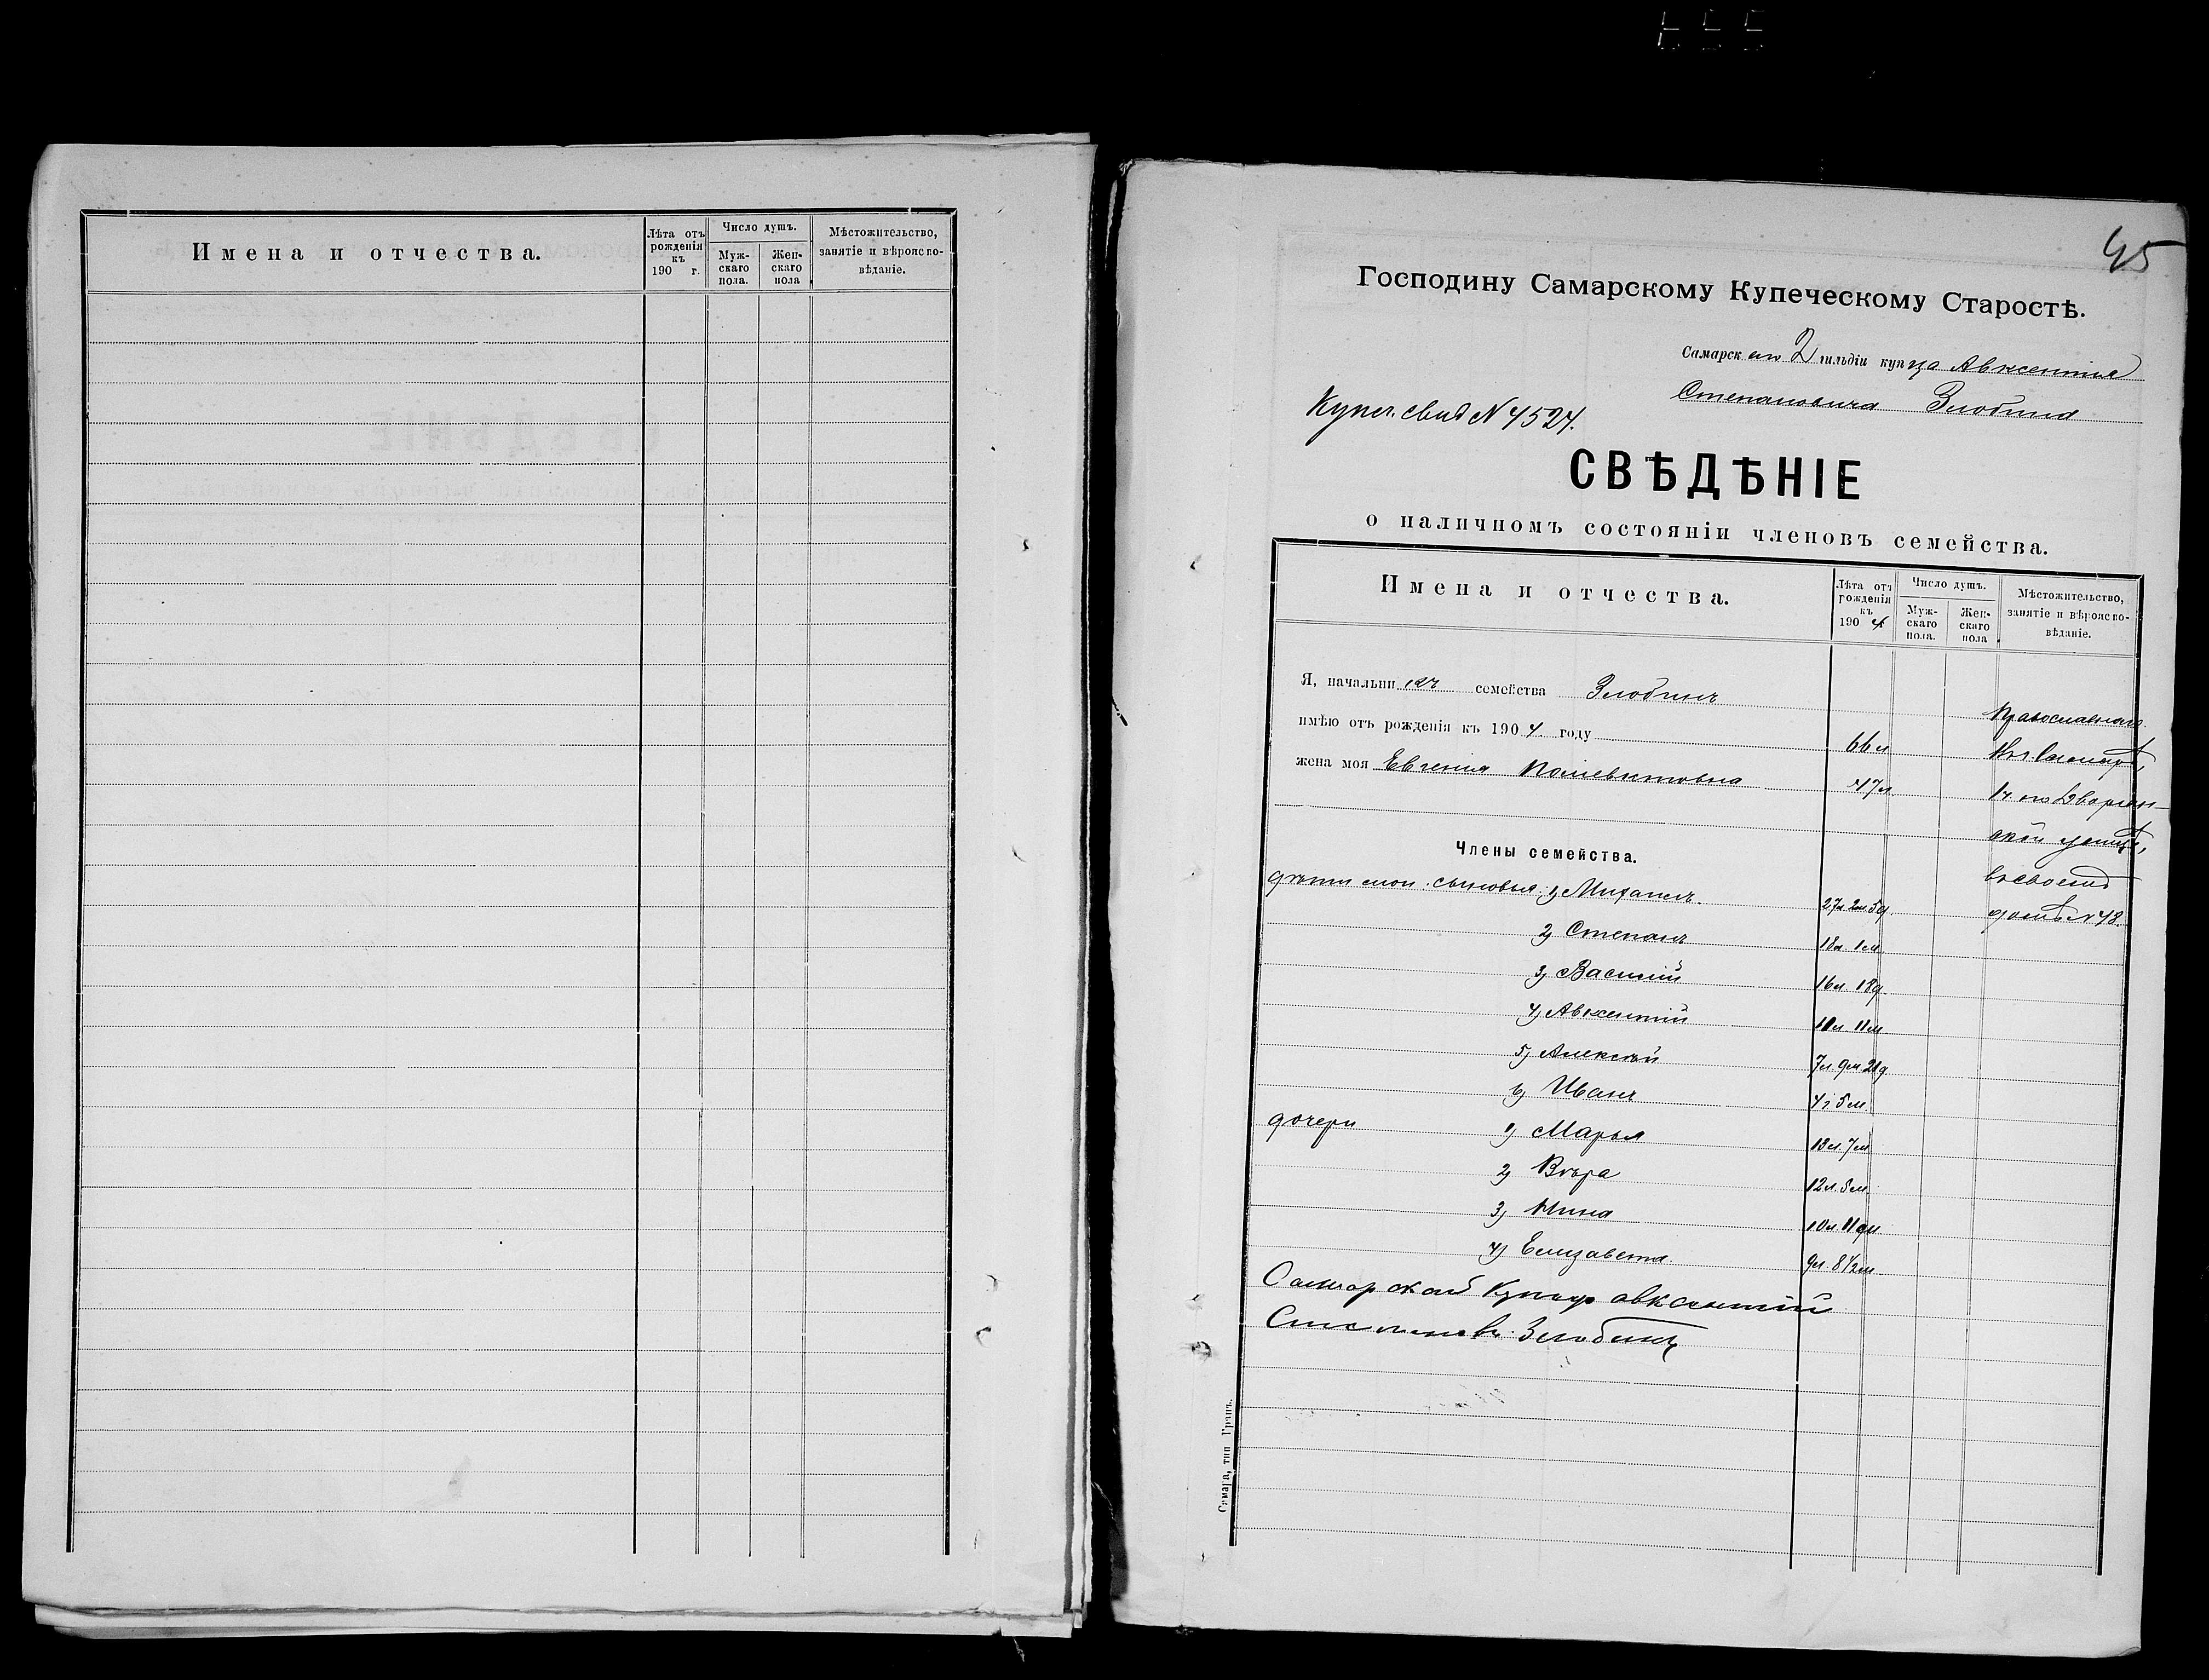 Имена и отчества.
Лѣта отъ рожденія къ 190 г.
Число душъ.
Муж-скаго пола.
Жен-скаго пола
Мѣстожительство, занятіе и вѣроиспо-вѣданіе.
45
Господину Самарскому Купеческому Старостѣ.
Самарск 2 гильдіи купца Авксентія
Степановича Злобина
Купеч. свид № 4524.
СВѢДѢНІЕ
о наличномъ состояніи членовъ семейства.
Имена и отчества.
Лѣта отъ рожденія къ 1904
Число душъ.
Муж-скаго пола.
Жен-скаго пола
Мѣстожительство, занятіе и вѣроиспо-вѣданіе.
Я, начальникъ семейства Злобинъ
Православнаго
имѣю отъ рожденія къ 1904 году 66 л
Самарѣ,
жена моя Евгенія 47 л
1 ч. по Дворян-
ской улицѣ,
Члены семейства.
въ своемъ
дѣти мои: сыновья: 1) Михаилъ. 27 л 2 м 5 д.
домѣ № 48.
2) Степанъ 18 л. 1 м
3) Василій 16 л. 18 д.
4) Авксентій 11 м.
5) Алексѣй 7 л. 9 м. 21 д
6) Иванъ 4 г 5 м.
дочери 1) Марья 13 л. 7 м
2) Вѣра 12 л. 5 м.
3) Нина 10 л. 11 м
4) Елизавета. 9 л. 8 1/2 м.
Самарской Купецъ авксентій
Степановъ Злобинъ
Самара, тип Гранъ.